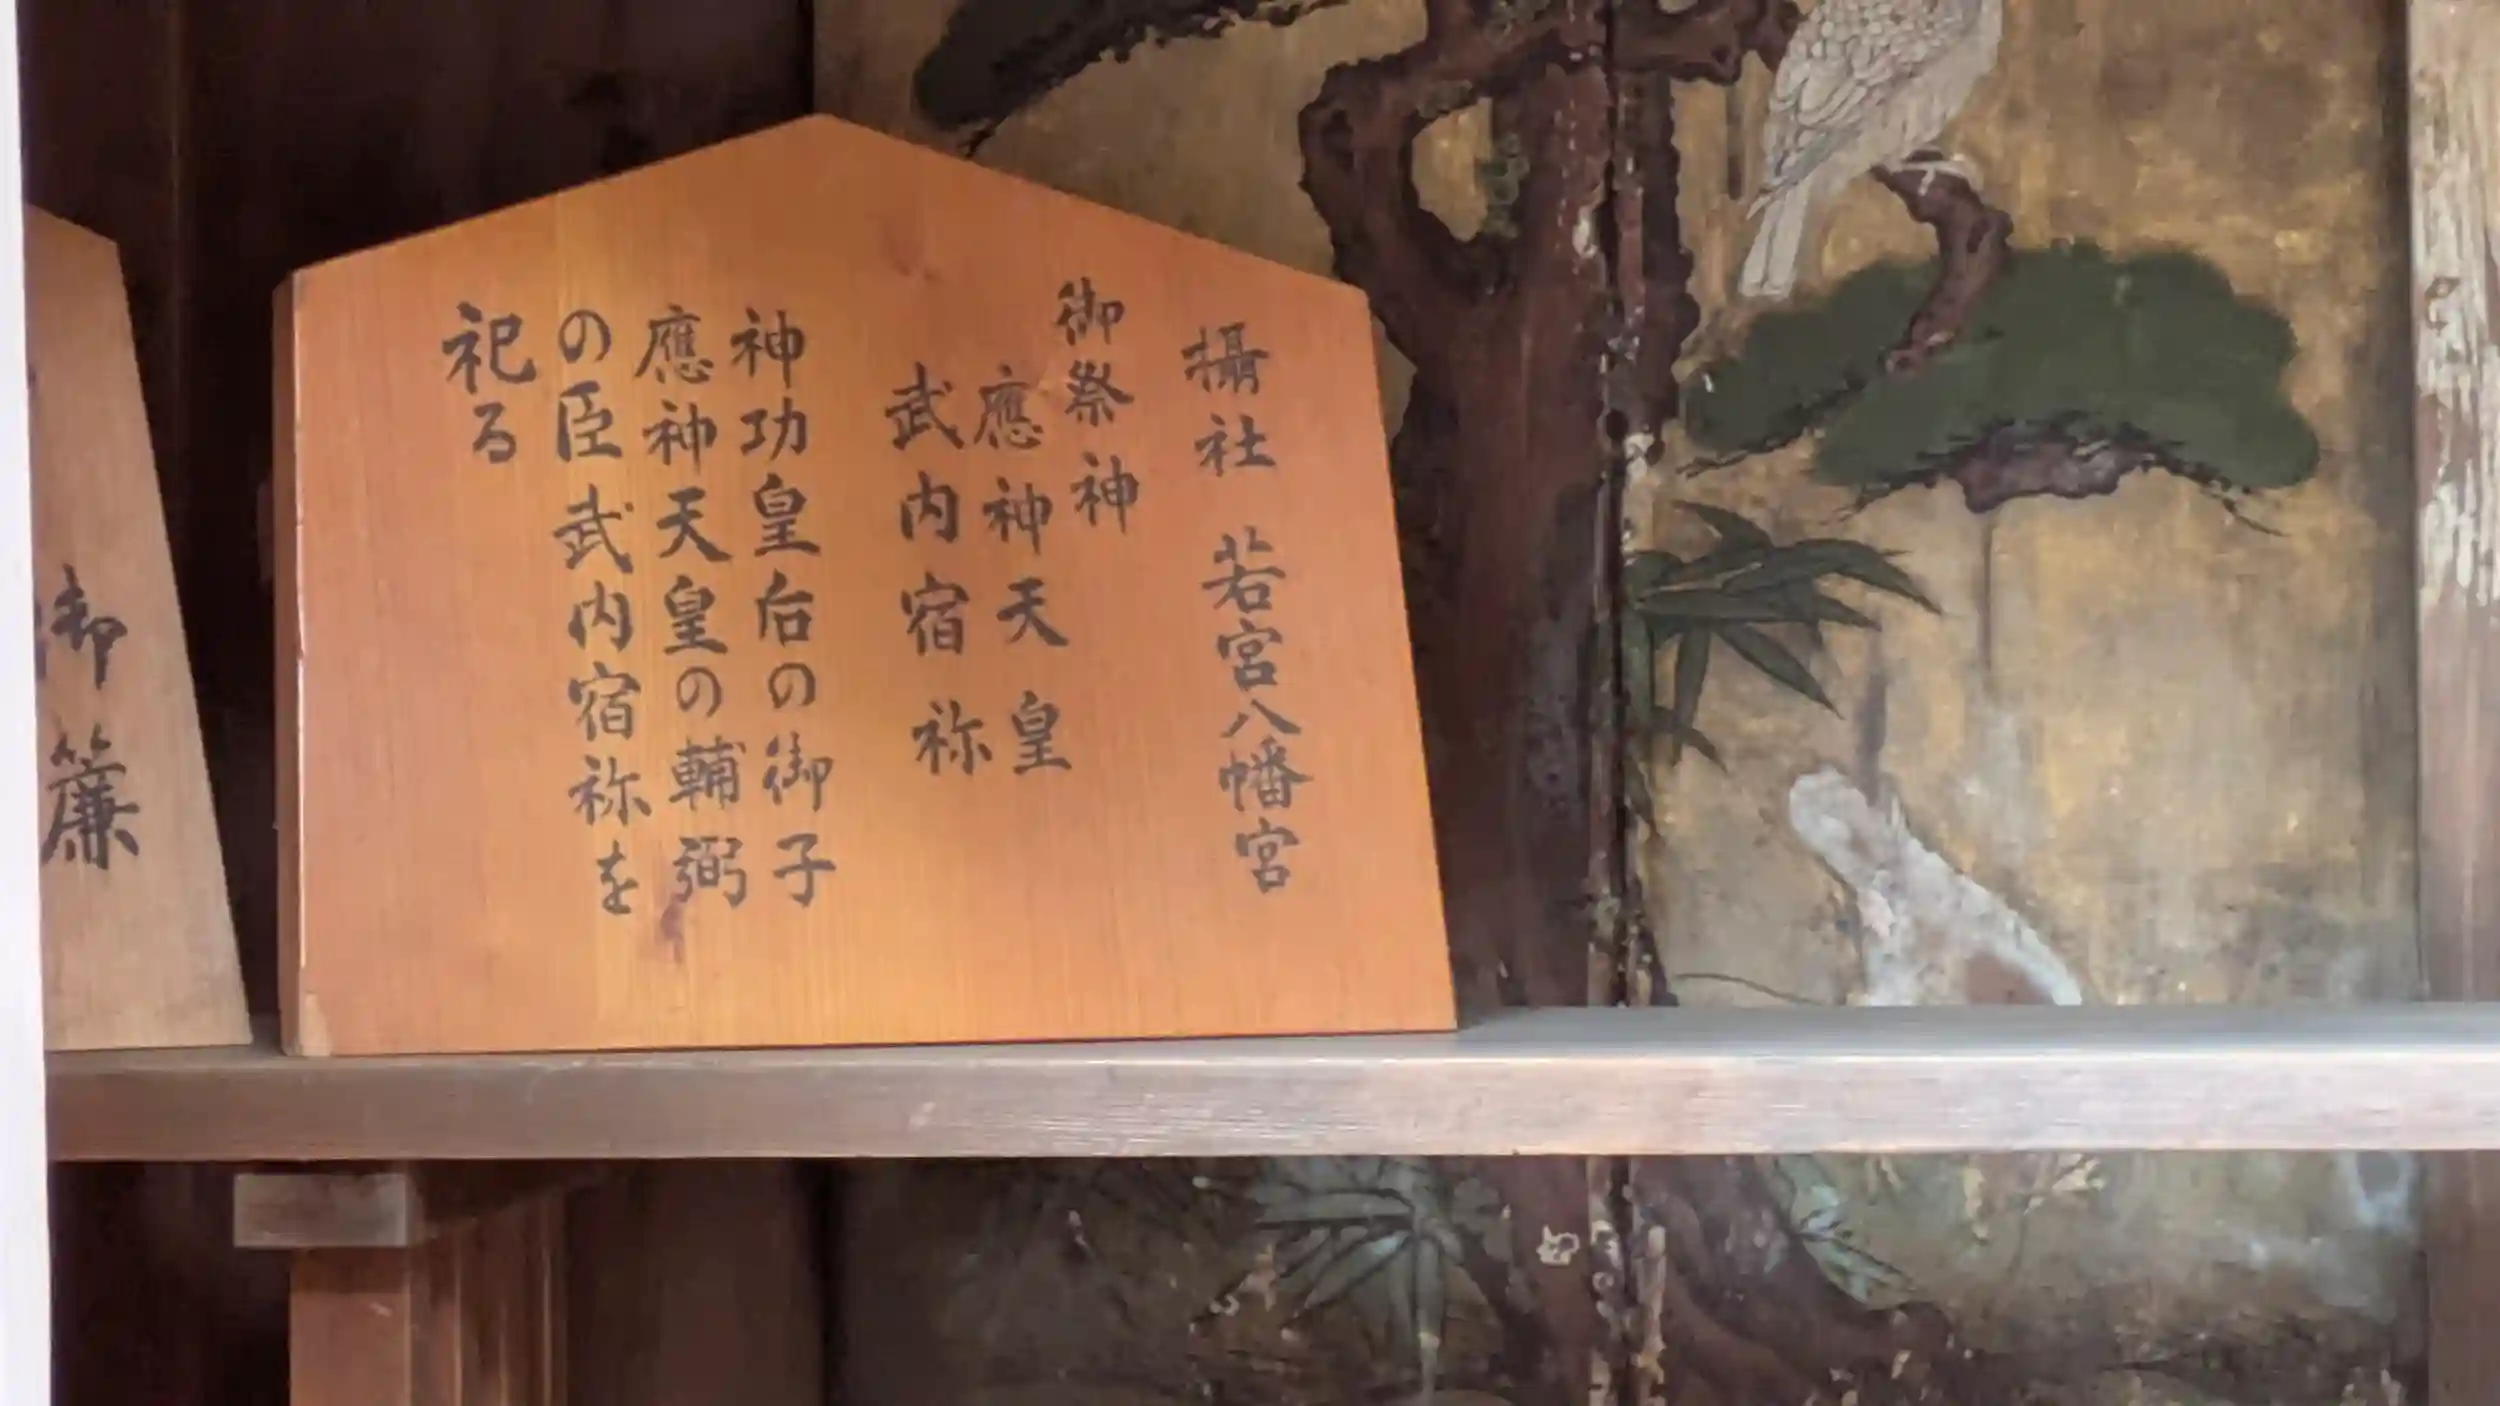 攝社 若宮八幡宮
御祭神
應神天皇
武内宿祢
神功皇后の御子
應神天皇の輔弼
の臣武内宿祢を
祀る
御簾